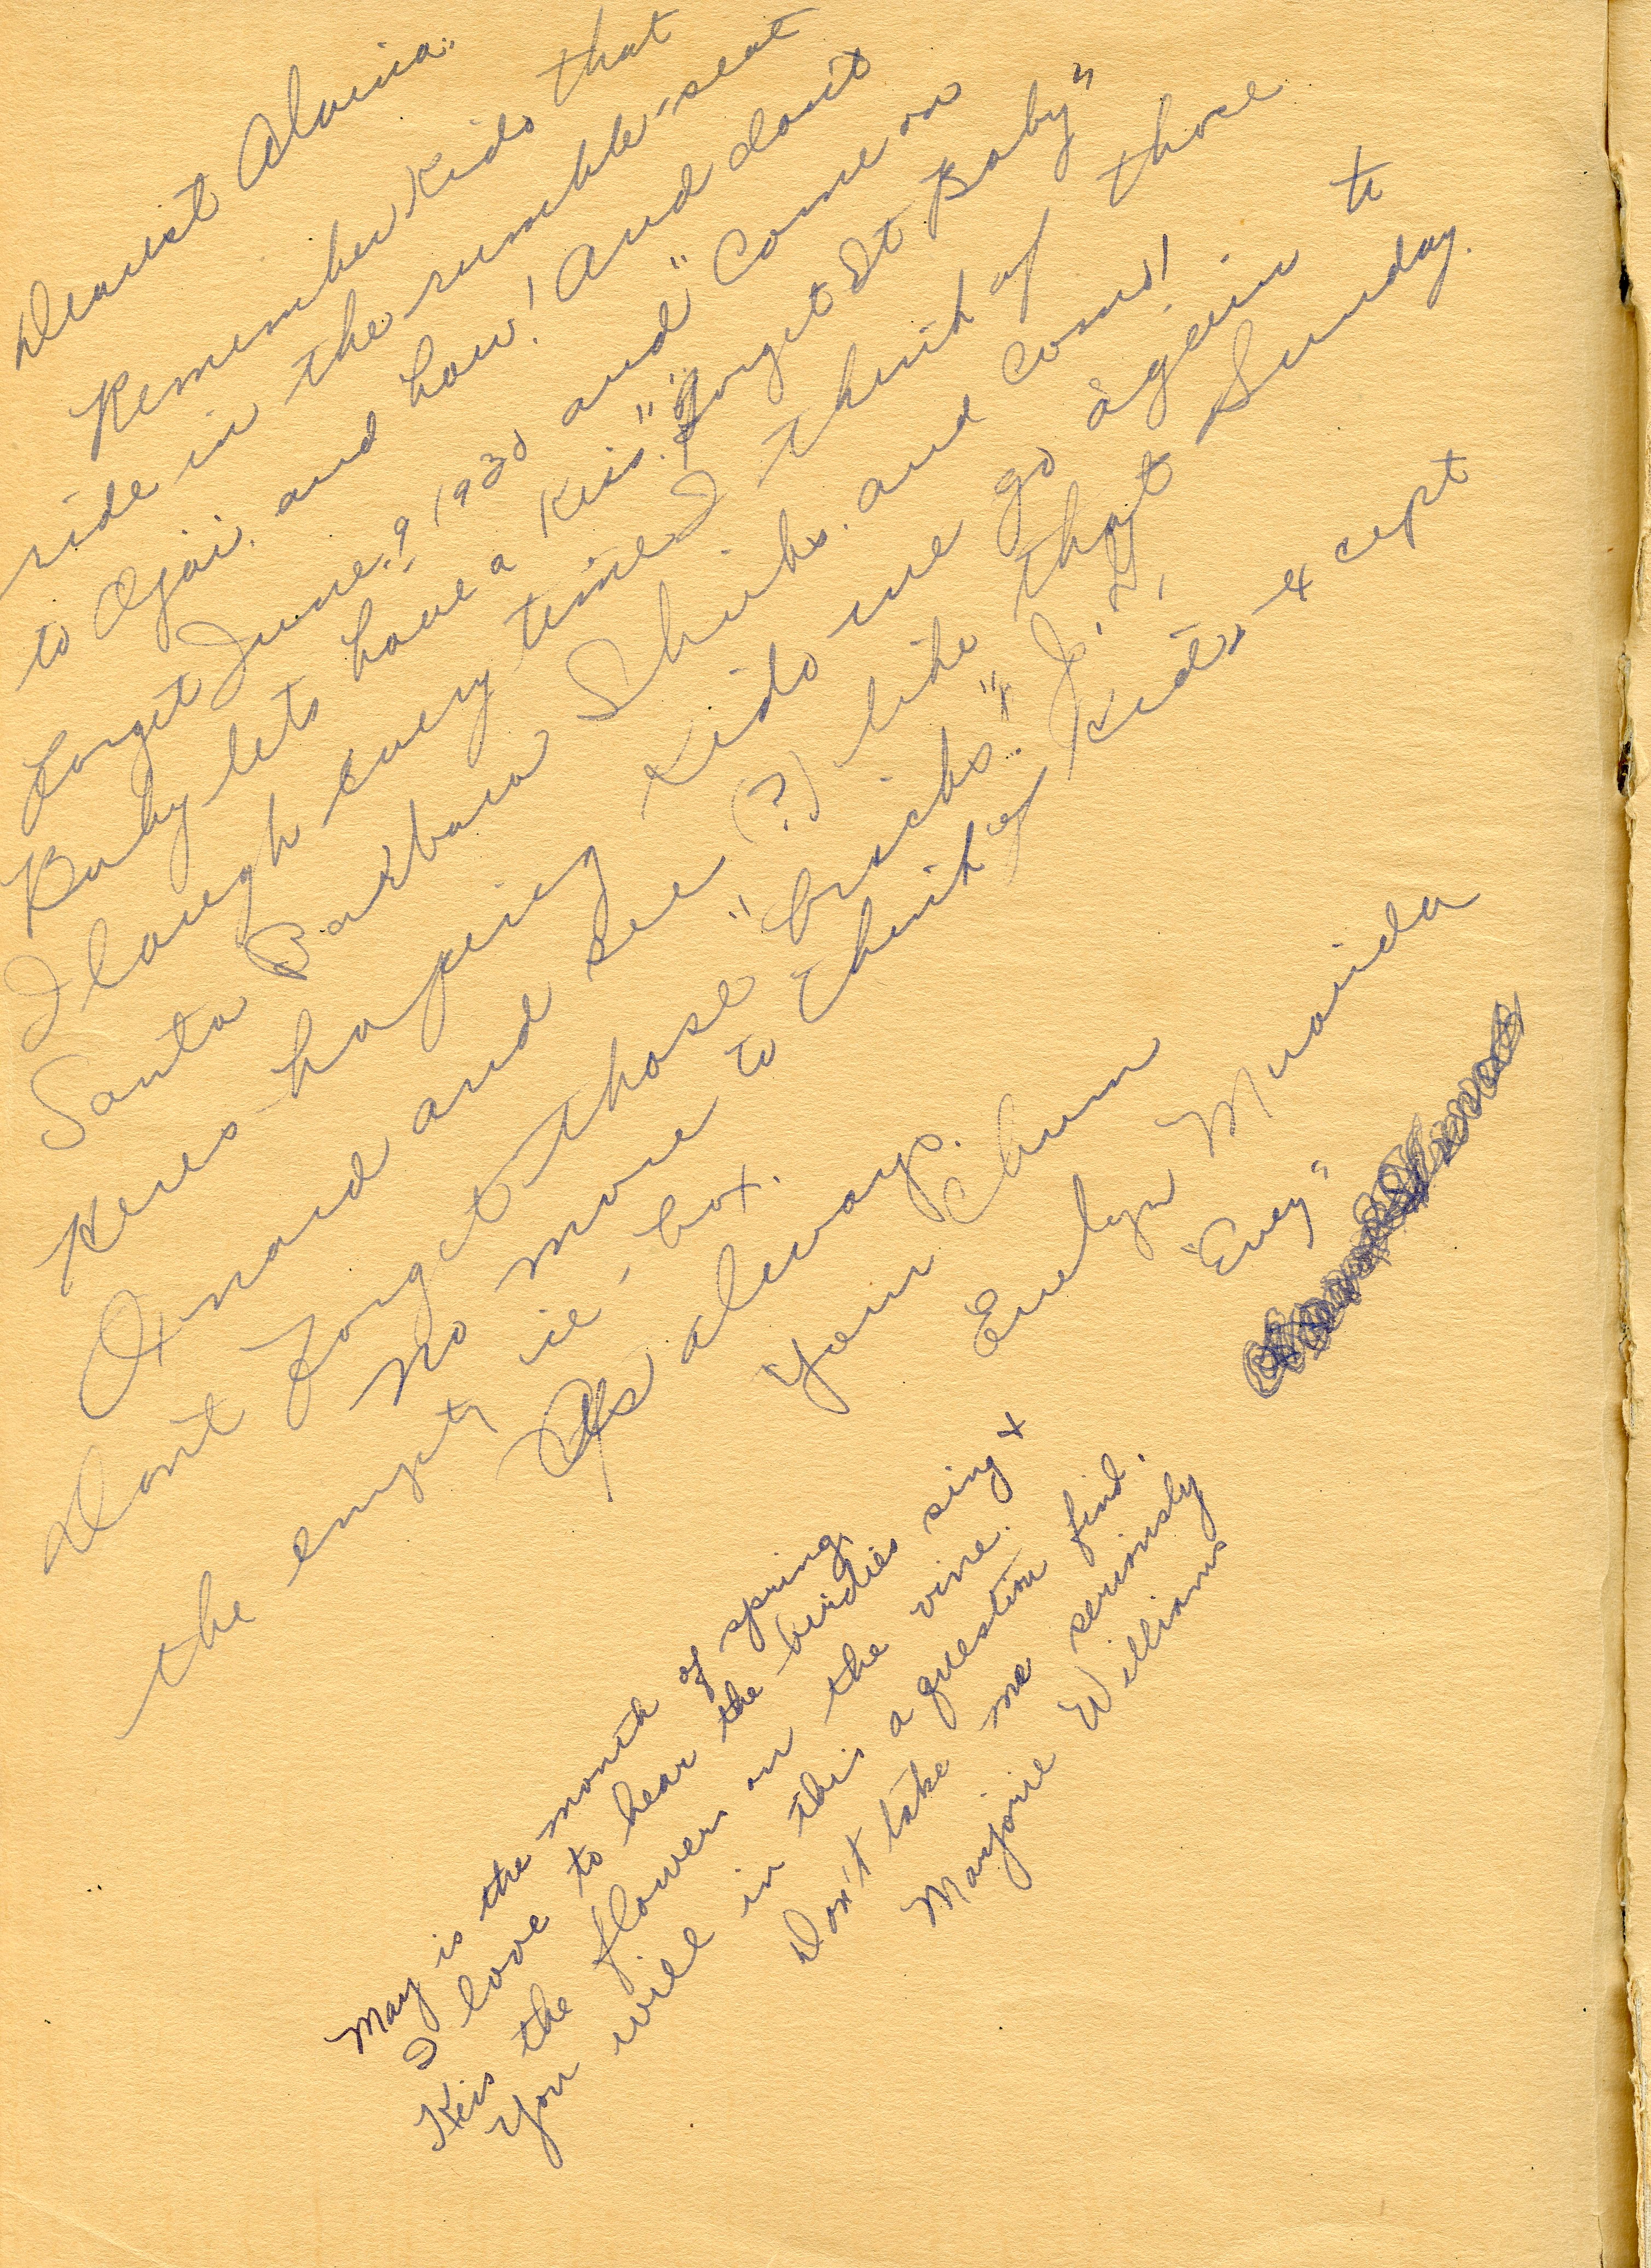 Dearest Alvina:
Remember Kido that
ride in the rumble-seat
to Ojai. and how! And don't
forget June 9 1930 and "Come on
Baby lets have a Kiss." "forget It Baby"
I laugh every time I think of those
Santa Barbara Shieks. and coms!
Heres hopeing Kido we go again to
Oxnard and see (?) like that Sunday.
Dont forget those "bricks" J. H.
no more to think of Kido - except
the empty ice-box.
As always.
Your Chum
Evelyn Muaida
"Evey"
May is the month of spring.
I love to hear the birdies sing +
Kiss the flowers on the vine.
You will in this a question find.
Don't take me seriously
Marjorie Williams